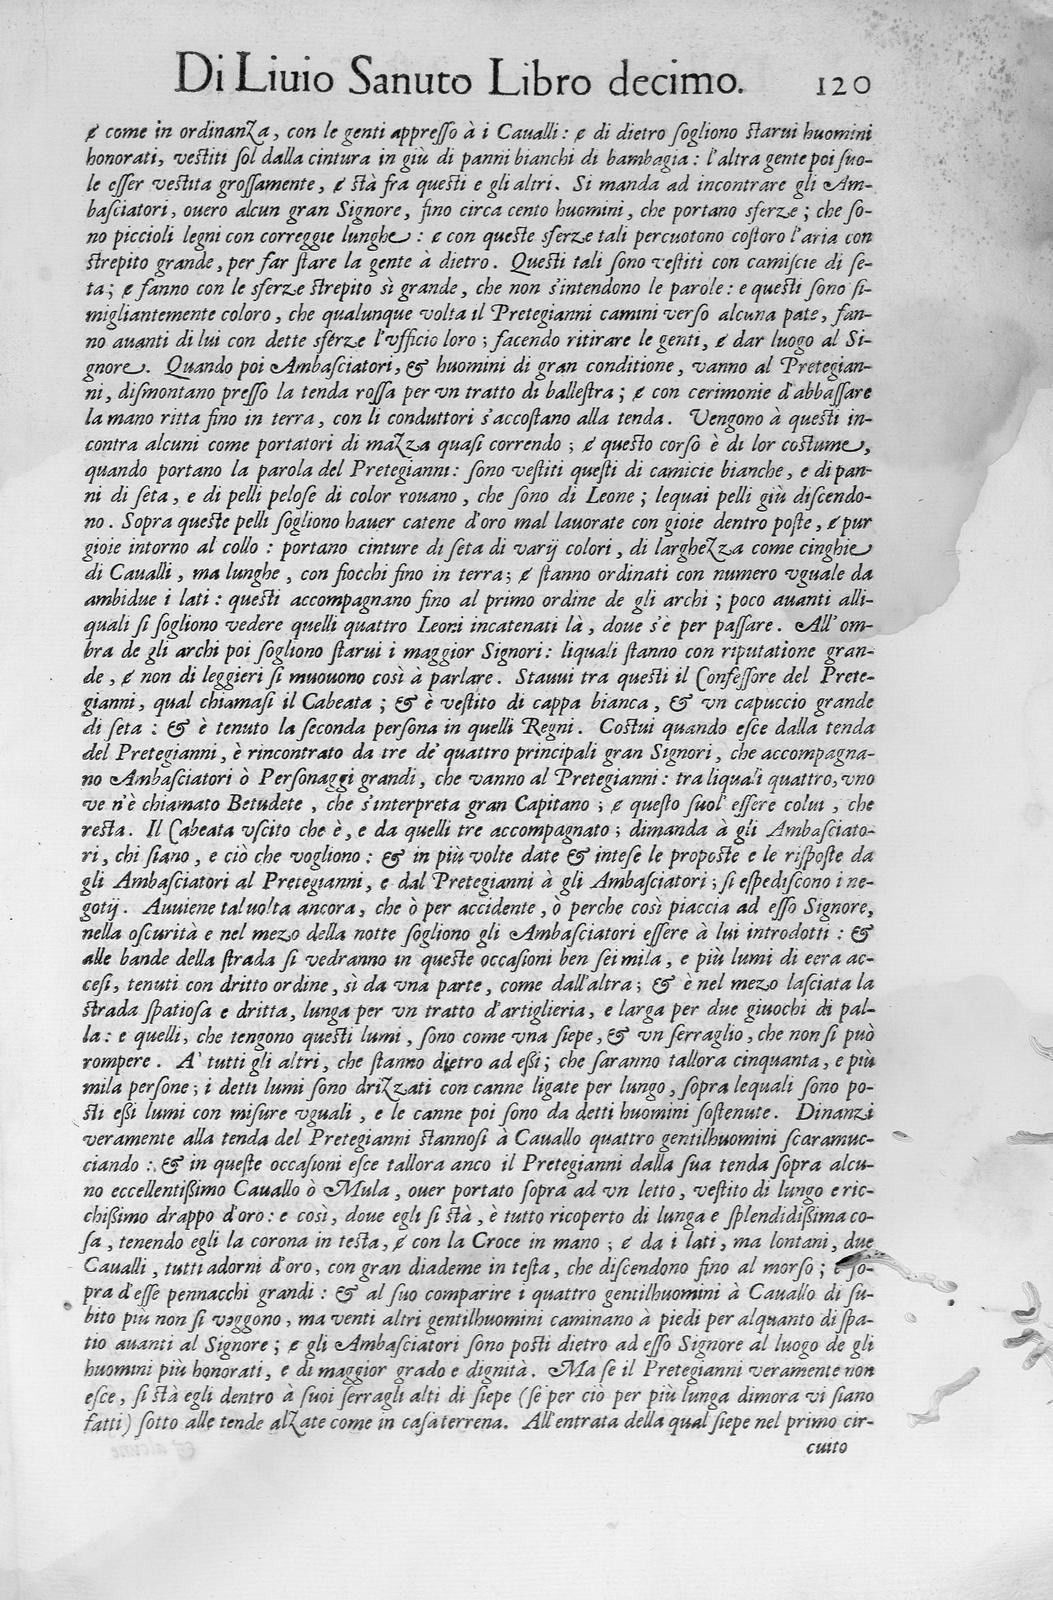 Di Liuio Sanuto Libro decimo. 120
& come in ordinanza, con le genti appresso à i Caualli: & di dietro sogliono starui huomini
honorati, vestiti sol dalla cintura in giù di panni bianchi di bambagia: l'altra gente poi suo-
le esser vestita grossamente, & stà fra questi e gli altri. Si manda ad incontrare gli Am-
basciatori, ouero alcun gran Signore, fino circa cento huomini, che portano sferze; che so-
no piccioli legni con correggie lunghe: & con queste sferze tali percuotono costoro l'aria con
strepito grande, per far stare la gente à dietro. Questi tali sono vestiti con camiscie di se-
ta; & fanno con le sferze strepito sì grande, che non s'intendono le parole: e questi sono si-
migliantemente coloro, che qualunque volta il Pretegianni camini verso alcuna pate, fan-
no auanti di lui con dette sferze l'vfficio loro; facendo ritirare le genti, & dar luogo al Si-
gnore. Quando poi Ambasciatori, & huomini di gran conditione, vanno al Pretegian-
ni, dismontano presso la tenda rossa per vn tratto di ballestra; & con cerimonie d'abbassare
la mano ritta fino in terra, con li conduttori s'accostano alla tenda. Vengono à questi in-
contra alcuni come portatori di mazza quasi correndo; & questo corso è di lor costume,
quando portano la parola del Pretegianni: sono vestiti questi di camicie bianche, e di pan-
ni di seta, e di pelli pelose di color rouano, che sono di Leone; lequai pelli giù discendo-
no. Sopra queste pelli sogliono hauer catene d'oro mal lauorate con gioie dentro poste, & pur
gioie intorno al collo: portano cinture di seta di varij colori, di larghezza come cinghie
di Caualli, ma lunghe, con fiocchi fino in terra; & stanno ordinati con numero vguale da
ambidue i lati: questi accompagnano fino al primo ordine de gli archi; poco auanti alli-
quali si sogliono vedere quelli quattro Leoni incatenati là, doue s'è per passare. All'om-
bra de gli archi poi sogliono starui i maggior Signori: liquali stanno con riputatione gran-
de, & non di leggieri si muouono così à parlare. Stauui tra questi il Confessore del Prete-
gianni, qual chiamasi il Cabeata; & è vestito di cappa bianca, & vn capuccio grande
di seta: & è tenuto la seconda persona in quelli Regni. Costui quando esce dalla tenda
del Pretegianni, è rincontrato da tre de' quattro principali gran Signori, che accompagna-
no Ambasciatori ò Personaggi grandi, che vanno al Pretegianni: tra liquali quattro, vno
ve n'è chiamato Betudete, che s'interpreta gran Capitano; & questo suol' essere colui, che
resta. Il Cabeata vscito che è, e da quelli tre accompagnato; dimanda à gli Ambasciato-
ri, chi siano, e ciò che vogliono: & in più volte date & intese le proposte e le risposte da
gli Ambasciatori al Pretegianni, e dal Pretegianni à gli Ambasciatori; si espediscono i ne-
gotij. Auuiene taluolta ancora, che ò per accidente, ò perche così piaccia ad esso Signore,
nella oscurità e nel mezo della notte sogliono gli Ambasciatori essere à lui introdotti: &
alle bande della strada si vedranno in queste occasioni ben sei mila, e più lumi di eera ac-
cesi, tenuti con dritto ordine, sì da vna parte, come dall'altra; & è nel mezo lasciata la
strada spatiosa e dritta, lunga per vn tratto d'artiglieria, e larga per due giuochi di pal-
la: e quelli, che tengono questi lumi, sono come vna siepe, & vn serraglio, che non si può
rompere. A' tutti gli altri, che stanno dietro ad essi; che saranno tallora cinquanta, e più
mila persone; i detti lumi sono drizzati con canne ligate per lungo, sopra lequali sono po-
sti essi lumi con misure vguali, e le canne poi sono da detti huomini sostenute. Dinanzi
veramente alla tenda del Pretegianni stannosi à Cauallo quattro gentilhuomini scaramuc-
ciando: & in queste occasioni esce tallora anco il Pretegianni dalla sua tenda sopra alcu-
no eccellentissimo Cauallo ò Mula, ouer portato sopra ad vn letto, vestito di lungo e ric-
chissimo drappo d'oro: e così, doue egli si stà, è tutto ricoperto di lunga e splendidissima co-
sa, tenendo egli la corona in testa, & con la Croce in mano; & da i lati, ma lontani, due
Caualli, tutti adorni d'oro, con gran diademe in testa, che discendono fino al morso; e so-
pra d'esse pennacchi grandi: & al suo comparire i quattro gentilhuomini à Cauallo di su-
bito più non si veggono, ma venti altri gentilhuomini caminano à piedi per alquanto di spa-
tio auanti al Signore; & gli Ambasciatori sono posti dietro ad esso Signore al luogo de gli
huomini più honorati, e di maggior grado e dignità. Ma se il Pretegianni veramente non
esce, si stà egli dentro à suoi serragli alti di siepe (se per ciò per più lunga dimora vi siano
fatti) sotto alle tende alzate come in casa terrena. All'entrata della qual siepe nel primo cir-
cuito